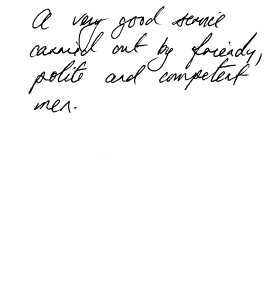 A very good service
carried out by friendly,
polite and competent
men.